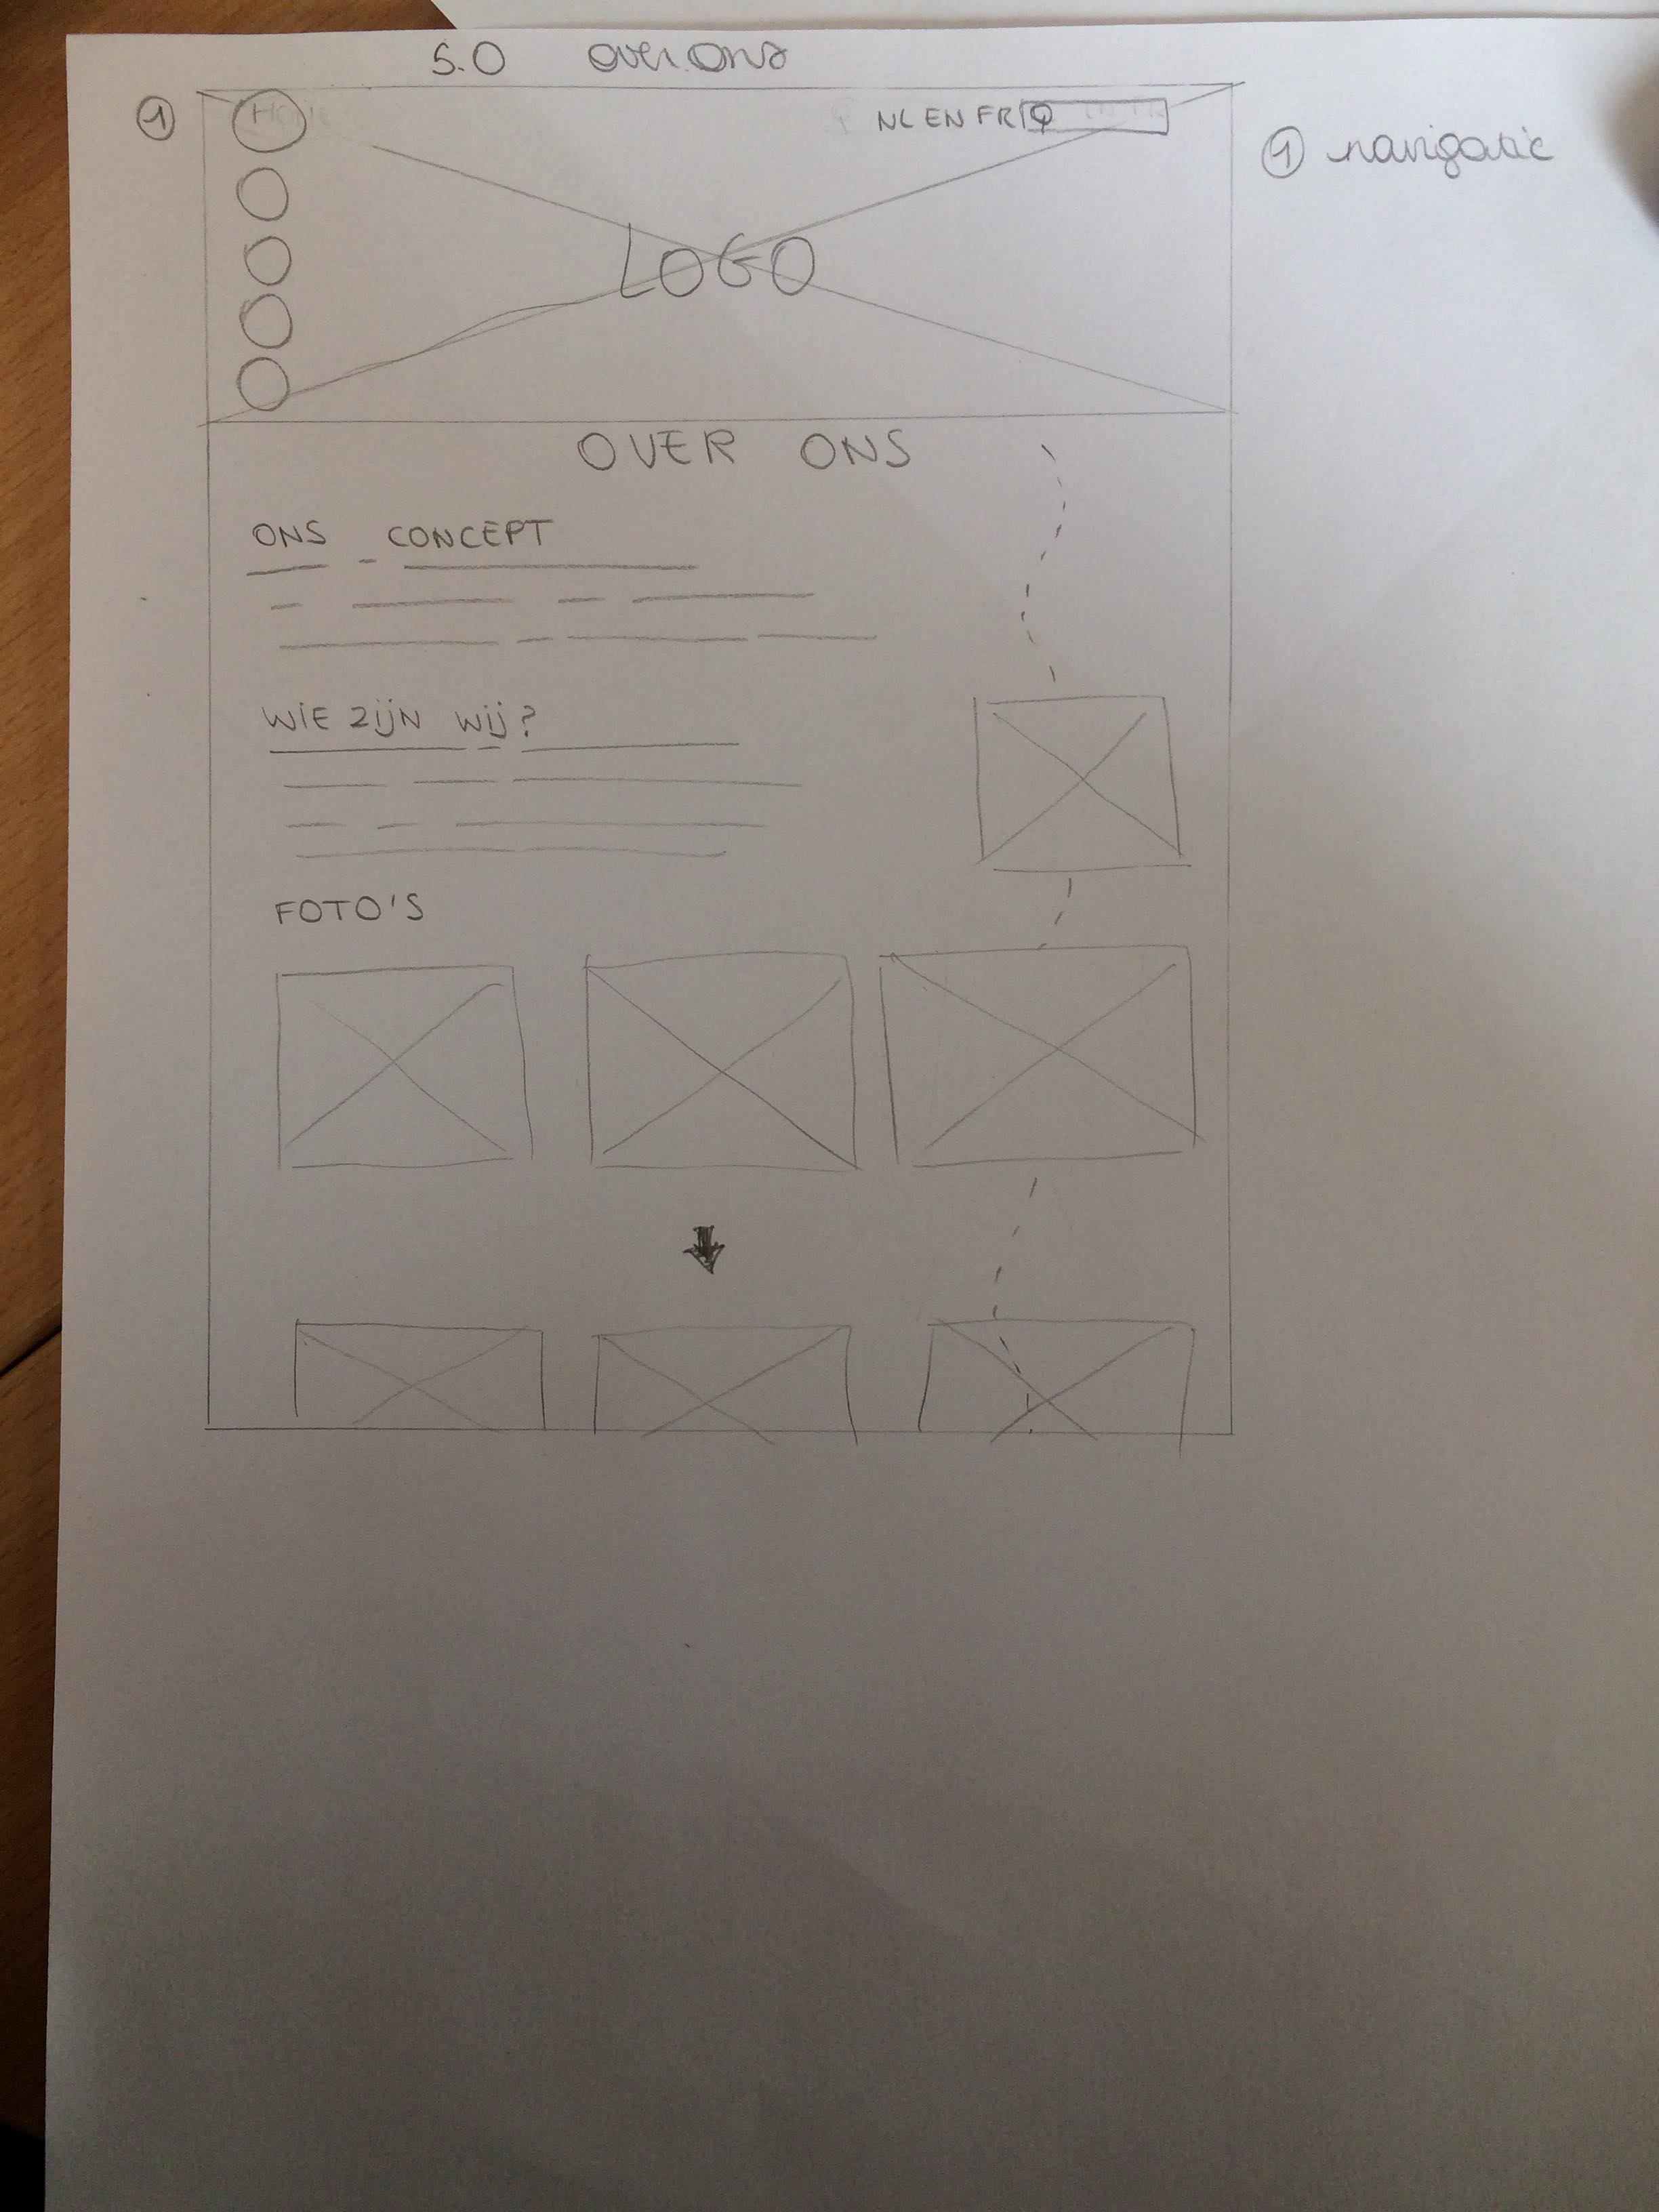 5.0 over ons
1 NL EN FR
1 navigatie
LOGO
OVER ONS
ONS CONCEPT
WIE ZIJN WIJ?
FOTO'S